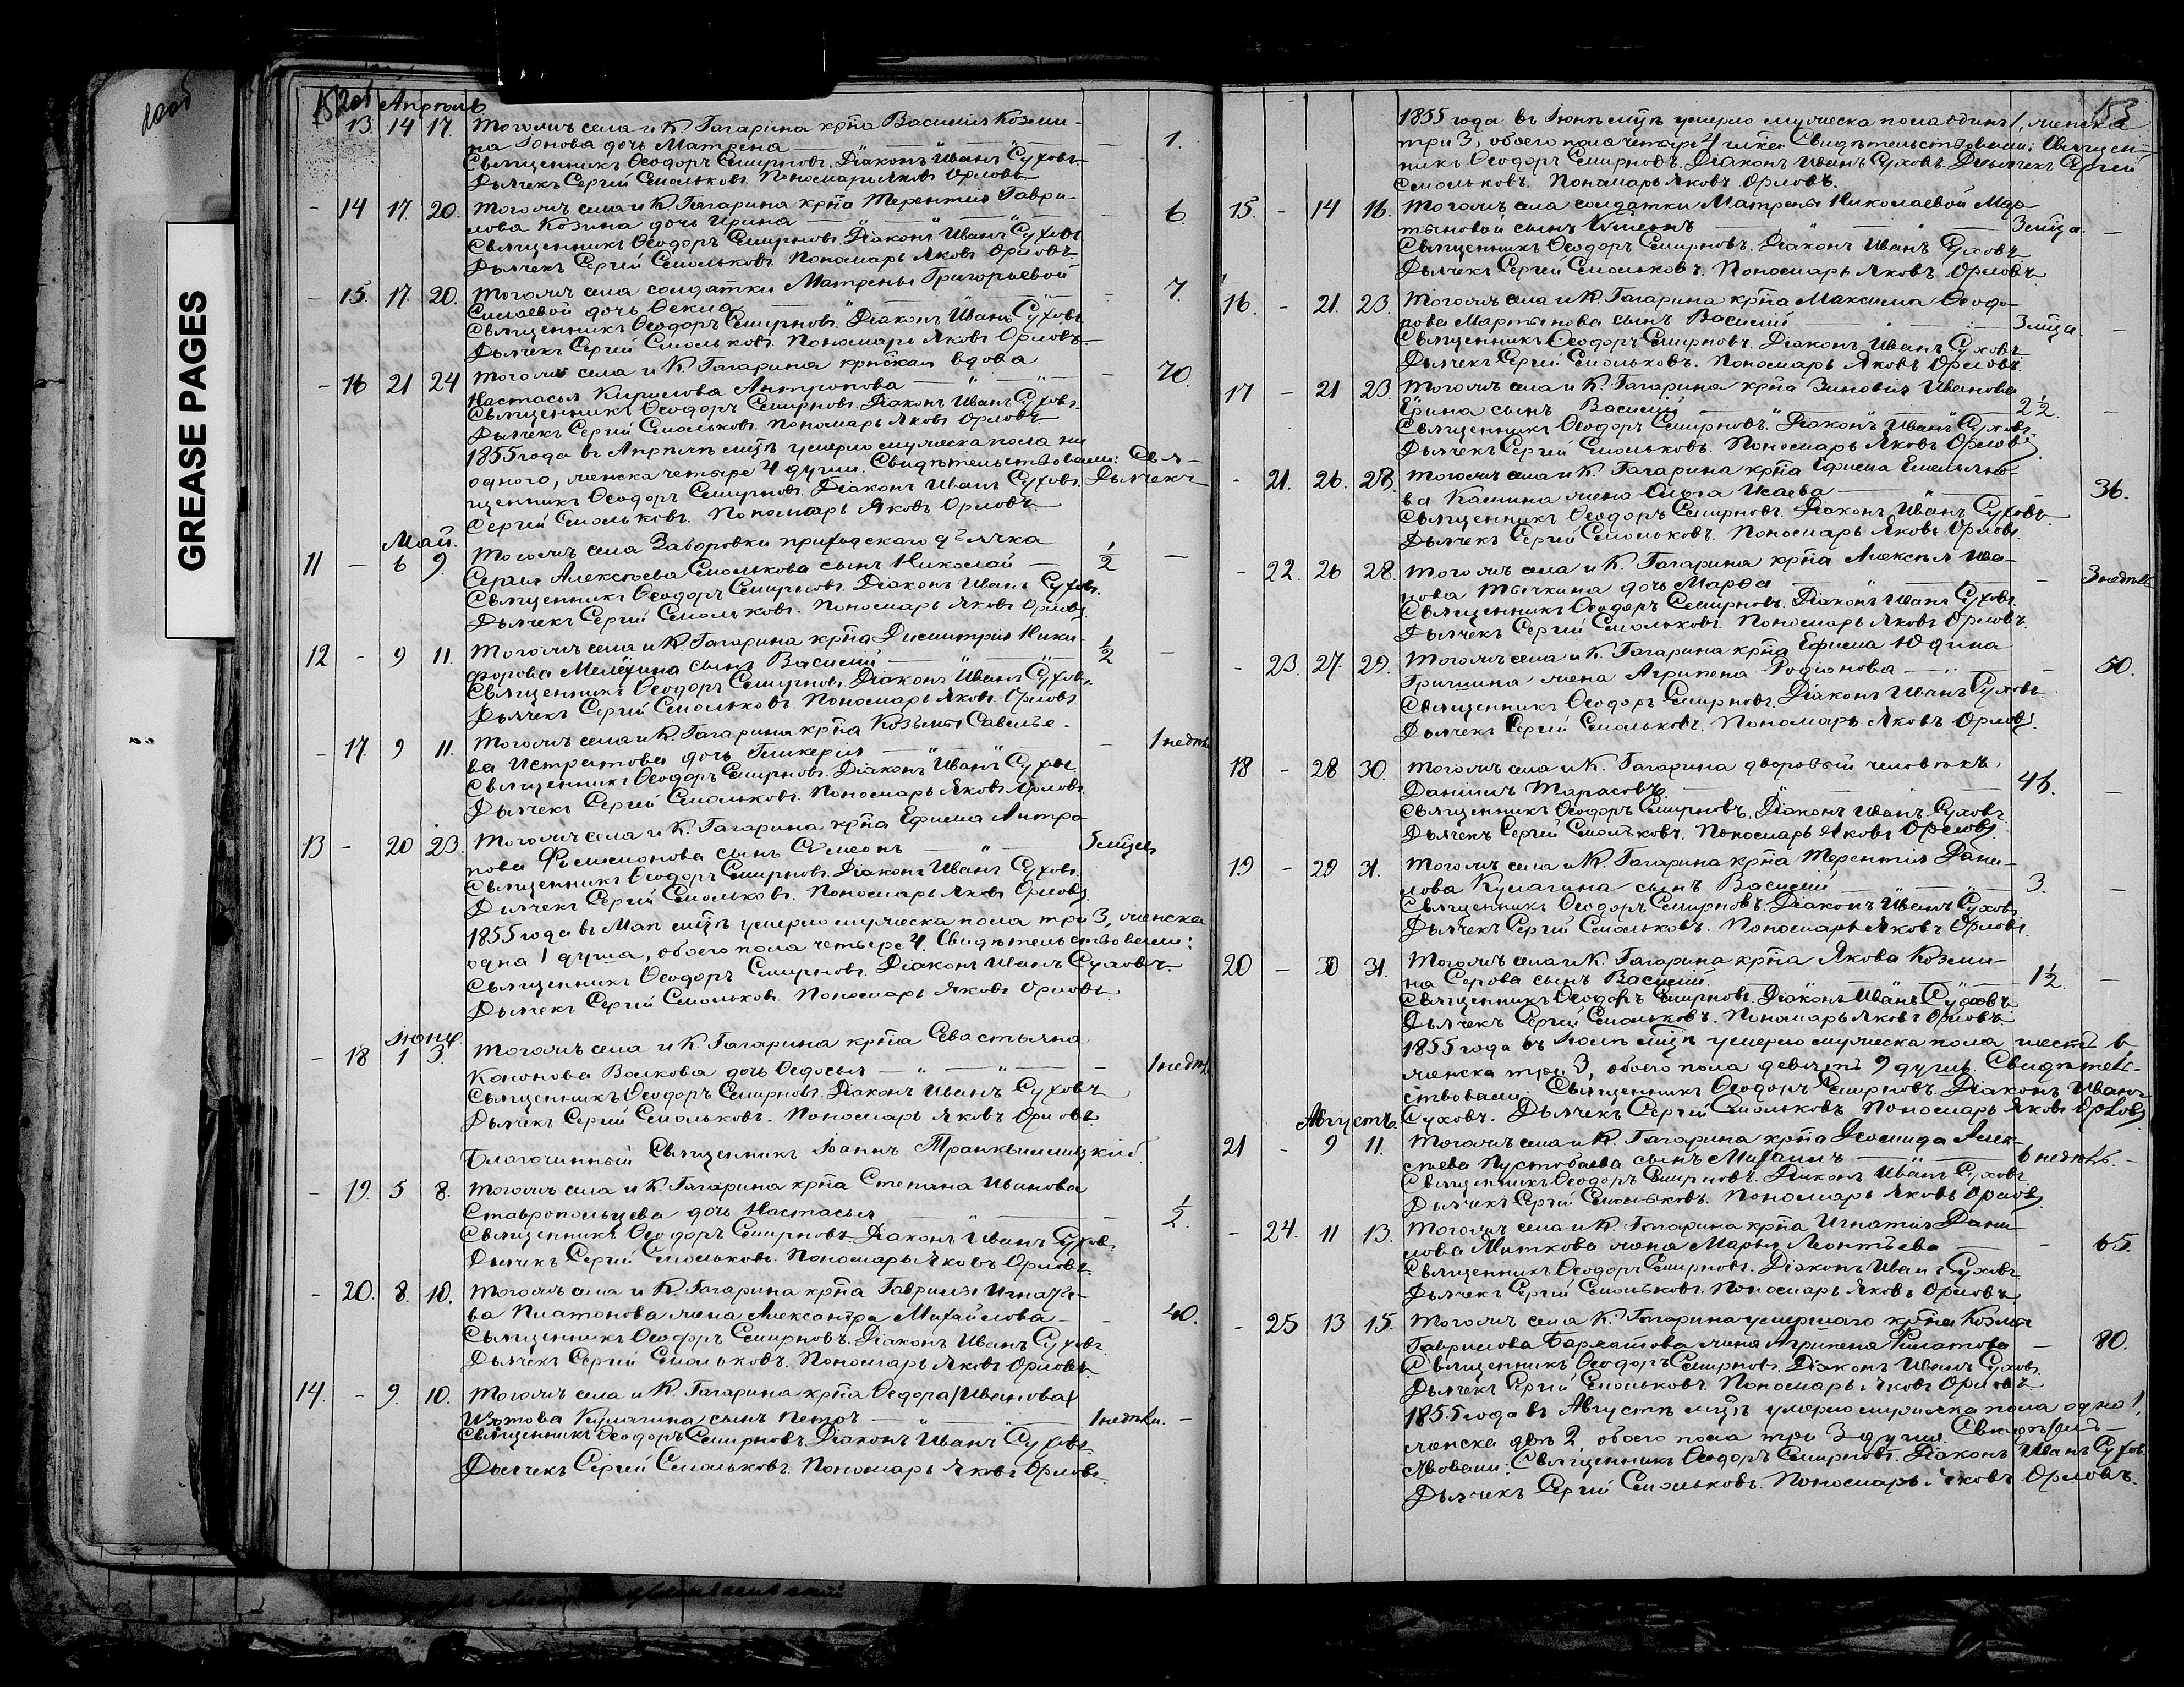 GREASE PAGES
Апрѣль
13 14 17. Тогожъ села и К. Гагарина крна Василія Козми- 1.
на Іонова дочь Матрена
Священникъ Ѳеодоръ Смирновъ. Діаконъ Иванъ Суховъ.
Дьячекъ Сергій Смольковъ. Пономарь Яковъ Орловъ.
- 14 17. 20. Тогожъ села и К. Гагарина крна Терентія Гаври- 6.
лова Козина дочь Ирина
Священникъ Ѳеодоръ Смирновъ. Діаконъ Иванъ Суховъ.
Дьячекъ Сергій Смольковъ. Пономарь Яковъ Орловъ.
- 15. 17. 20. Тогожъ села солдатки Матрены Григорьевой 7.
дочь Ѳекла
Священникъ Ѳеодоръ Смирновъ. Діаконъ Иванъ Суховъ.
Дьячекъ Сергій Смольковъ. Пономарь Яковъ Орловъ.
- 16 21 24 Тогожъ села и К. Гагарина крнская вдова 70.
Настасья Кирилова Антропова
Священникъ Ѳеодоръ Смирновъ. Діаконъ Иванъ Суховъ.
Дьячекъ Сергій Смольковъ. Пономарь Яковъ Орловъ.
1855 года въ Апрѣлѣ мцѣ умерло мужеска пола ни
одного, женска четыре 4 души. Свидѣтельствовали: Свя-
щенникъ Ѳеодоръ Смирновъ. Діаконъ Иванъ Суховъ. Дьячекъ
Сергій Смольковъ. Пономарь Яковъ Орловъ.
Май.
11 - 6 9. Тогожъ села Заборовки приходскаго дьячка
Сергія Алексѣева Смолькова сынъ Николай ½ -
Священникъ Ѳеодоръ Смирновъ. Діаконъ Иванъ Суховъ.
Дьячекъ Сергій Смольковъ. Пономарь Яковъ Орловъ.
12 - 9 11. Тогожъ села и К. Гагарина крна Димитрія Ники- ½ -
форова сынъ Василій
Священникъ Ѳеодоръ Смирновъ. Діаконъ Иванъ Суховъ.
Дьячекъ Сергій Смольковъ. Пономарь Яковъ Орловъ.
- 17. 9 11. Тогожъ села и К. Гагарина крна Козьмы Савелье- - 1 недѣл.
ва Истратова дочь Гликерія
Священникъ Ѳеодоръ Смирновъ. Діаконъ Иванъ Суховъ.
Дьячекъ Сергій Смольковъ. Пономарь Яковъ Орловъ.
13 - 20 23. Тогожъ села и К. Гагарина крна Ефима Антро-
пова Филимонова сынъ Сѵмеонъ 5 мцев
Священникъ Ѳеодоръ Смирновъ. Діаконъ Иванъ Суховъ.
Дьячекъ Сергій Смольковъ. Пономарь Яковъ Орловъ.
1855 года въ Маѣ мцѣ умерло мужеска пола три 3, женска
одна 1 душа, обоего пола четыре 4. Свидѣтельствовали:
Священникъ Ѳеодоръ Смирновъ. Діаконъ Иванъ Суховъ.
Дьячекъ Сергій Смольковъ. Пономарь Яковъ Орловъ.
Іюнь
- 18 1 3. Тогожъ села и К. Гагарина крна Севастьяна
Волкова дочь Ѳедосья - 1 недѣл.
Священникъ Ѳеодоръ Смирновъ. Діаконъ Иванъ Суховъ
Дьячекъ Сергій Смольковъ. Пономарь Яковъ Орловъ.
Благочинный Священникъ Іоаннъ Транквиллицкій.
- 19. 5 8. Тогожъ села и К. Гагарина крна Степана Иванова
Ставропольцева дочь Настасья - ½.
Священникъ Ѳеодоръ Смирновъ. Діаконъ Иванъ Суховъ.
Дьячекъ Сергій Смольковъ. Пономарь Яковъ Орловъ.
- 20. 8. 10. Тогожъ села и К. Гагарина крна Гавриила Игнатье-
ва Платонова жена Александра Михайлова - 40.
Священникъ Ѳеодоръ Смирновъ. Діаконъ Иванъ Суховъ.
Дьячекъ Сергій Смольковъ. Пономарь Яковъ Орловъ.
14. - 9. 10. Тогожъ села и К. Гагарина крна Ѳедора (Иванова)
Изотова Кулагина сынъ Петръ 1 недѣли. -
Священникъ Ѳеодоръ Смирновъ. Діаконъ Иванъ Суховъ.
Дьячекъ Сергій Смольковъ. Пономарь Яковъ Орловъ.
153
1855 года въ Іюнѣ мцѣ умерло мужеска пола одинъ 1, женска
три 3, обоего пола четыре 4 Свидѣтельствовали: Священ-
никъ Ѳеодоръ Смирновъ. Діаконъ Иванъ Суховъ. Дьячекъ Сергій
Смольковъ. Пономарь Яковъ Орловъ.
15. - 14 16. Тогожъ села солдатки Матрены Николаевой Мар-
тыновой сынъ 3 мца. -
Священникъ Ѳеодоръ Смирновъ. Діаконъ Иванъ Суховъ
Дьячекъ Сергій Смольковъ. Пономарь Яковъ Орловъ
16. - 21. 23. Тогожъ села и К. Гагарина крна Максима Ѳеодо-
рова Мартынова сынъ Василій 3 мца. -
Священникъ Ѳеодоръ Смирновъ. Діаконъ Иванъ Суховъ
Дьячекъ Сергій Смольковъ. Пономарь Яковъ Орловъ.
17 - 21 23. Тогожъ села и К. Гагарина крна Зиновія Иванова
Ёрина сынъ Василій 2½. -
Священникъ Ѳеодоръ Смирновъ. Діаконъ Иванъ Суховъ
Дьячекъ Сергій Смольковъ. Пономарь Яковъ Орловъ
- 21. 26. 28. Тогожъ села и К. Гагарина крна Ефима Емельяно-
ва Калинина жена Ольга Исаева - 36.
Священникъ Ѳеодоръ Смирновъ. Діаконъ Иванъ Суховъ
Дьячекъ Сергій Смольковъ. Пономарь Яковъ Орловъ.
- 22. 26 28. Тогожъ села и К. Гагарина крна Алексѣя Ива-
нова Тычкина дочь Марѳа - 3 недѣли
Священникъ Ѳеодоръ Смирновъ. Діаконъ Иванъ Суховъ.
Дьячекъ Сергій Смольковъ. Пономарь Яковъ Орловъ.
- 23. 27. 29. Тогожъ села и К. Гагарина крна Ефима Юдина
Гришина жена Агрипена Родіонова - 50.
Священникъ Ѳеодоръ Смирновъ. Діаконъ Иванъ Суховъ.
Дьячекъ Сергій Смольковъ. Пономарь Яковъ Орловъ.
18 - 28 30. Тогожъ села и К. Гагарина дворовый человѣкъ
Даніилъ Тарасовъ. 46. -
Священникъ Ѳеодоръ Смирновъ. Діаконъ Иванъ Суховъ
Дьячекъ Сергій Смольковъ. Пономарь Яковъ Орловъ
19 - 29 31. Тогожъ села и К. Гагарина крна Терентія Дани-
лова Кулагина сынъ Василій 3. -
Священникъ Ѳеодоръ Смирновъ. Діаконъ Иванъ Суховъ
Дьячекъ Сергій Смольковъ. Пономарь Яковъ Орловъ.
20 - 30 31. Тогожъ села и К. Гагарина крна Якова Козми-
на Серова сынъ Василій. 1½. -
Священникъ Ѳеодоръ Смирновъ. Діаконъ Иванъ Суховъ
Дьячекъ Сергій Смольковъ. Пономарь Яковъ Орловъ
1855 года въ Іюлѣ мцѣ умерло мужеска пола шесть 6
женска три 3, обоего пола девять 9 душъ. Свидѣтель-
ствовали Священникъ Ѳеодоръ Смирновъ. Діаконъ Иванъ
Суховъ. Дьячекъ Сергій Смольковъ Пономарь Яковъ Орловъ
Августъ.
21 - 9 11. Тогожъ села и К. Гагарина крна Алек-
сѣева Пустобаева сынъ Михаилъ 6 недѣль. -
Священникъ Ѳеодоръ Смирновъ. Діаконъ Иванъ Суховъ
Дьячекъ Сергій Смольковъ. Пономарь Яковъ Орловъ
- 24. 11 13. Тогожъ села и К. Гагарина крна Игнатія Дани-
лова Миткова жена Марья Леонтьева - 65.
Священникъ Ѳеодоръ Смирновъ. Діаконъ Иванъ Суховъ
Дьячекъ Сергій Смольковъ. Пономарь Яковъ Орловъ.
- 25 13 15. Тогожъ села К. Гагарина умершаго крна Козмы
Гаврилова жена Агрипена Филатова - 80.
Священникъ Ѳеодоръ Смирновъ. Діаконъ Иванъ Суховъ
Дьячекъ Сергій Смольковъ. Пономарь Яковъ Орловъ
1855 года въ Августѣ мцѣ умерло мужеска пола одно 1,
женска двѣ 2, обоего пола три 3 души. Свидѣтель-
ствовали: Священникъ Ѳеодоръ Смирновъ. Діаконъ Иванъ Суховъ.
Дьячекъ Сергій Смольковъ. Пономарь Яковъ Орловъ.